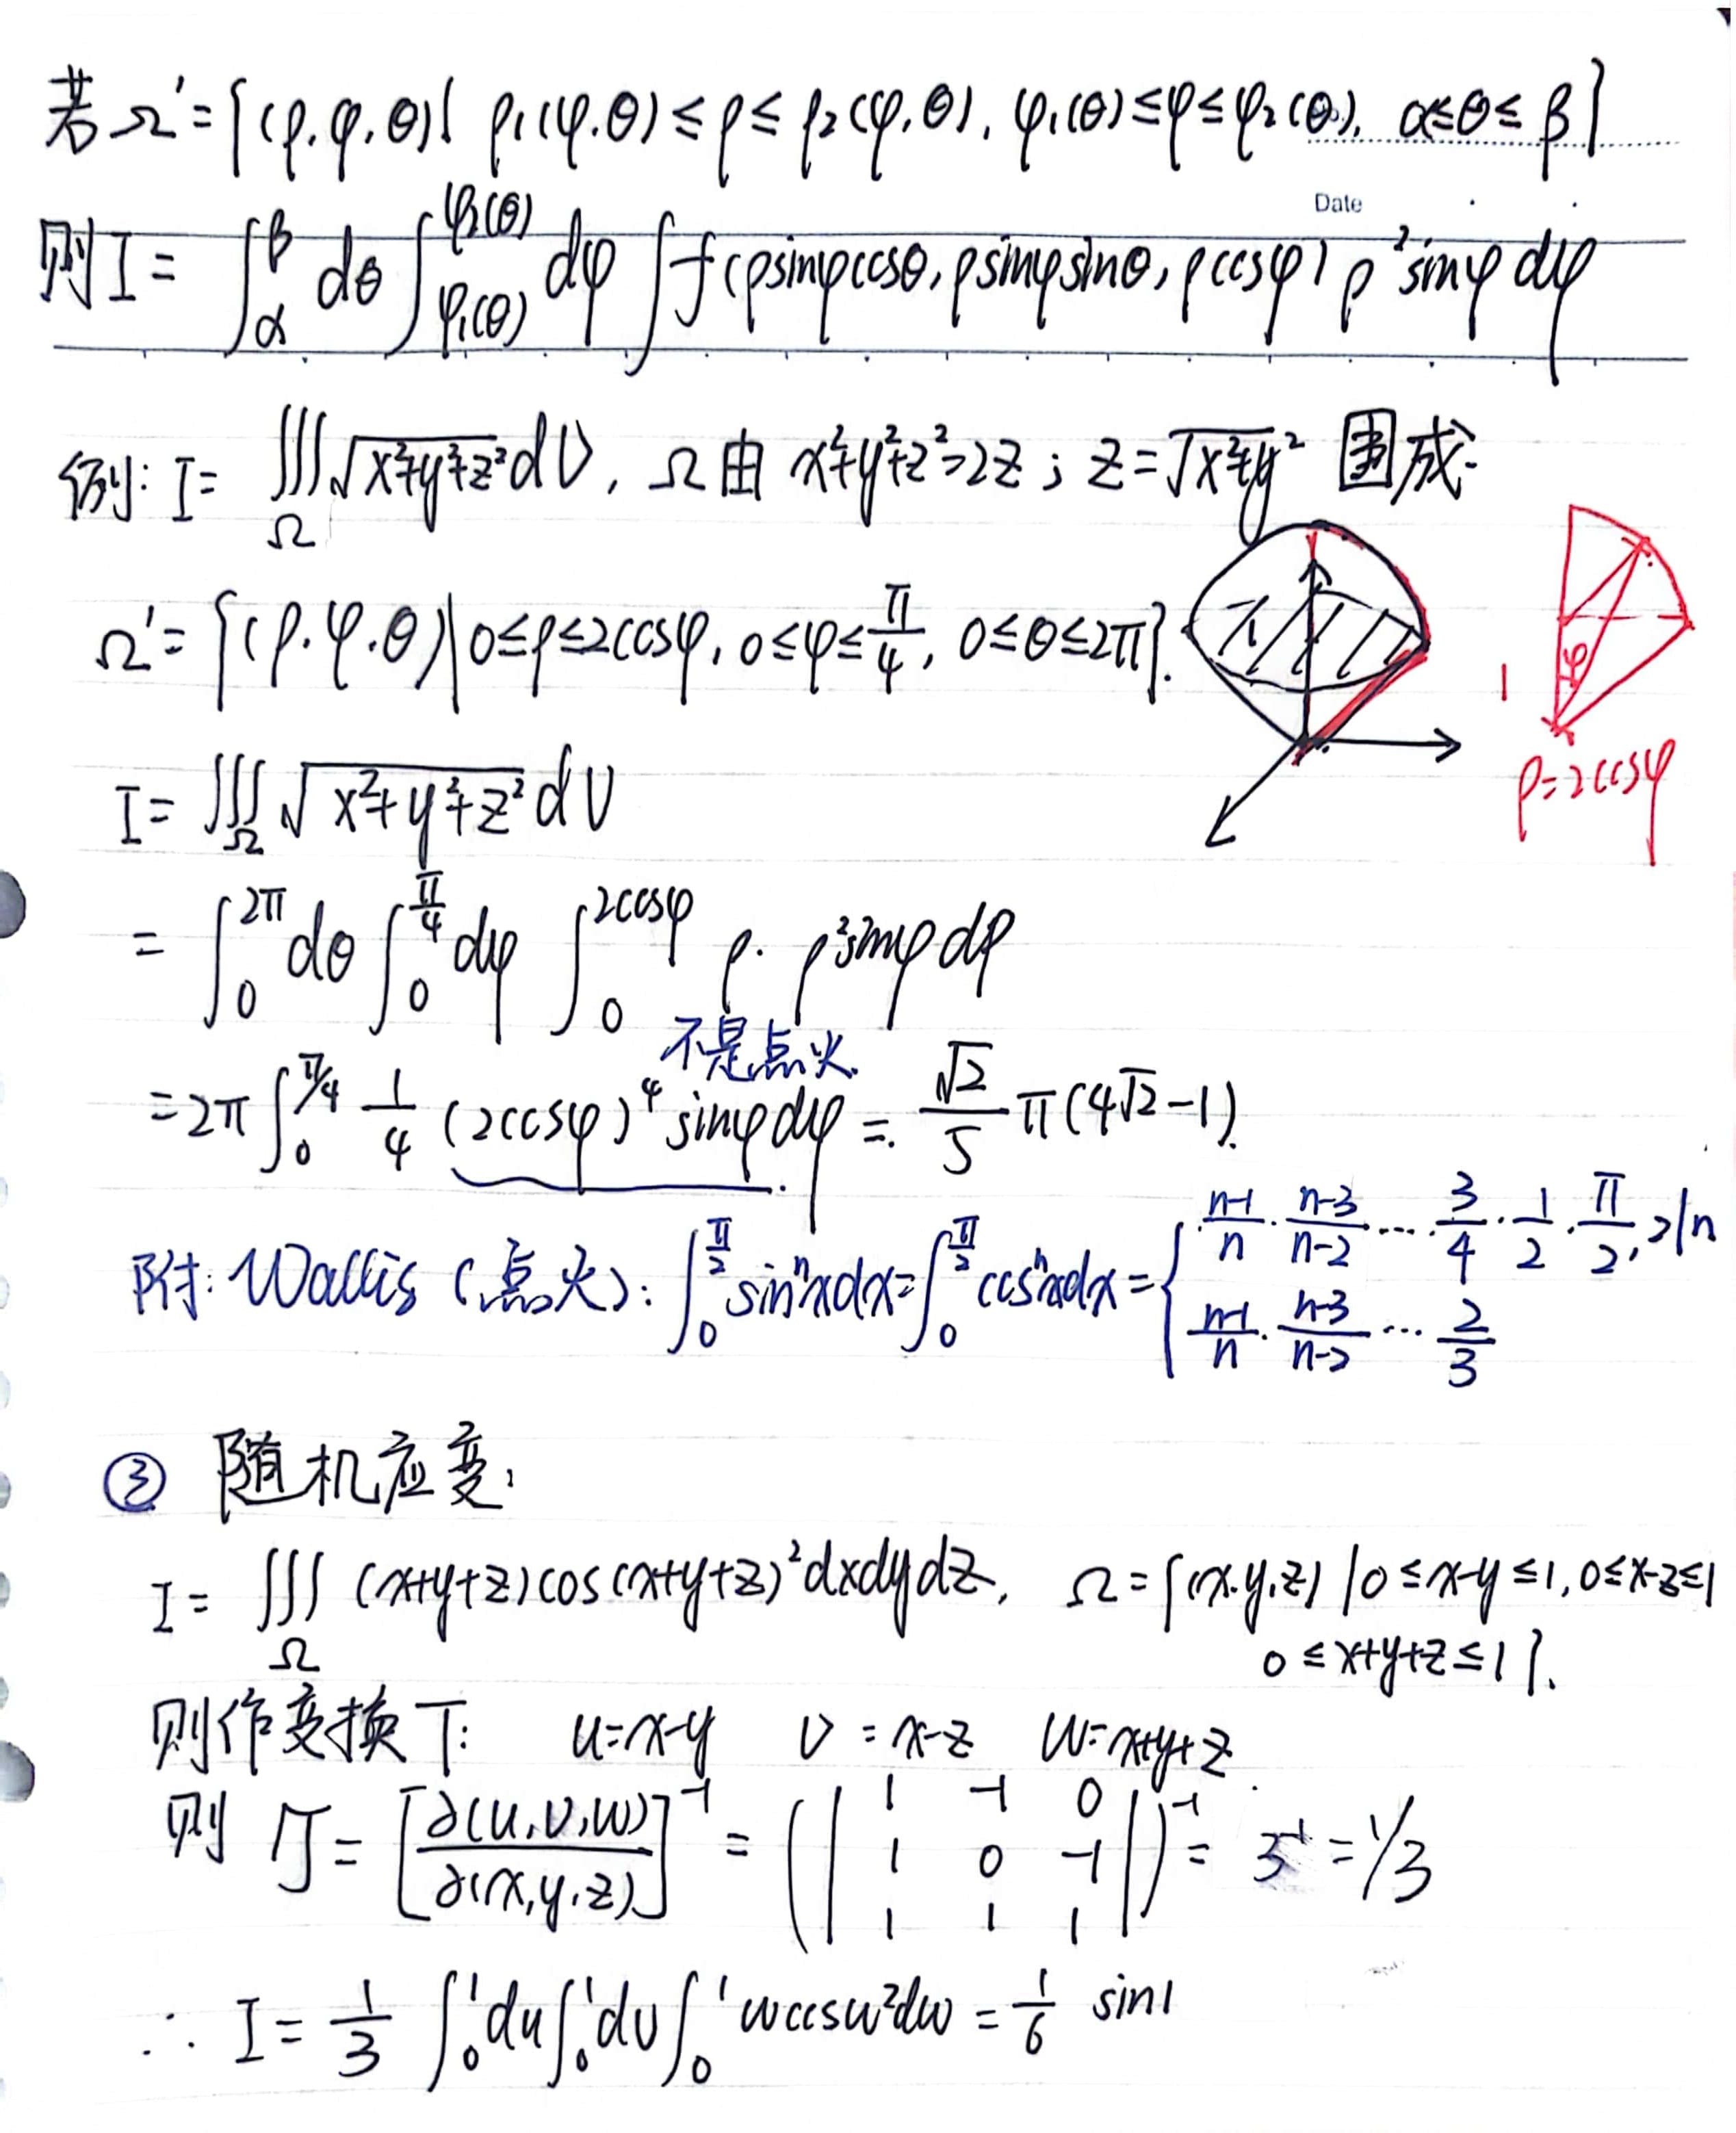 若Ω'={(ρ.φ.θ)| ρ₁(φ.θ)≤ρ≤ρ₂(φ,θ), φ₁(θ)≤φ≤φ₂(θ), α≤θ≤β}
Date
则I= ∫_α^β dθ ∫_{φ₁(θ)}^{φ₂(θ)} dφ ∫ f(ρsinφcosθ, ρsinφsinθ, ρcosφ) ρ²sinφ dρ
例: I= ∭_Ω √(x²+y²+z²) dV, Ω由 x²+y²+z²=2z; z=√(x²+y²) 围成.
Ω'={(ρ.φ.θ)|0≤ρ≤2cosφ, 0≤φ≤π/4, 0≤θ≤2π}.
φ
1
ρ=2cosφ
I= ∭_Ω √(x²+y²+z²) dV
= ∫_0^{2π} dθ ∫_0^{π/4} dφ ∫_0^{2cosφ} ρ·ρ²sinφ dρ
不是点火.
=2π ∫_0^{π/4} 1/4 (2cosφ)⁴ sinφ dφ = √2/5 π(4√2-1).
附: Wallis (点火): ∫_0^{π/2} sinⁿx dx = ∫_0^{π/2} cosⁿx dx = { (n-1)/n · (n-3)/(n-2) ··· 3/4 · 1/2 · π/2, 2|n
(n-1)/n · (n-3)/(n-2) ··· 2/3
③ 随机应变:
I= ∭_Ω (x+y+z)cos(x+y+z)² dxdydz, Ω={(x.y,z) | 0≤x-y≤1, 0≤x-z≤1
0≤x+y+z≤1}.
则作变换T: u=x-y v=x-z w=x+y+z.
则 J= [∂(u,v,w)/∂(x,y,z)]⁻¹ = (| 1 -1 0
1 0 -1
1 1 1 |)⁻¹ = 3⁻¹ = 1/3
∴ I= 1/3 ∫_0^1 du ∫_0^1 dv ∫_0^1 wcosw² dw = 1/6 sin1